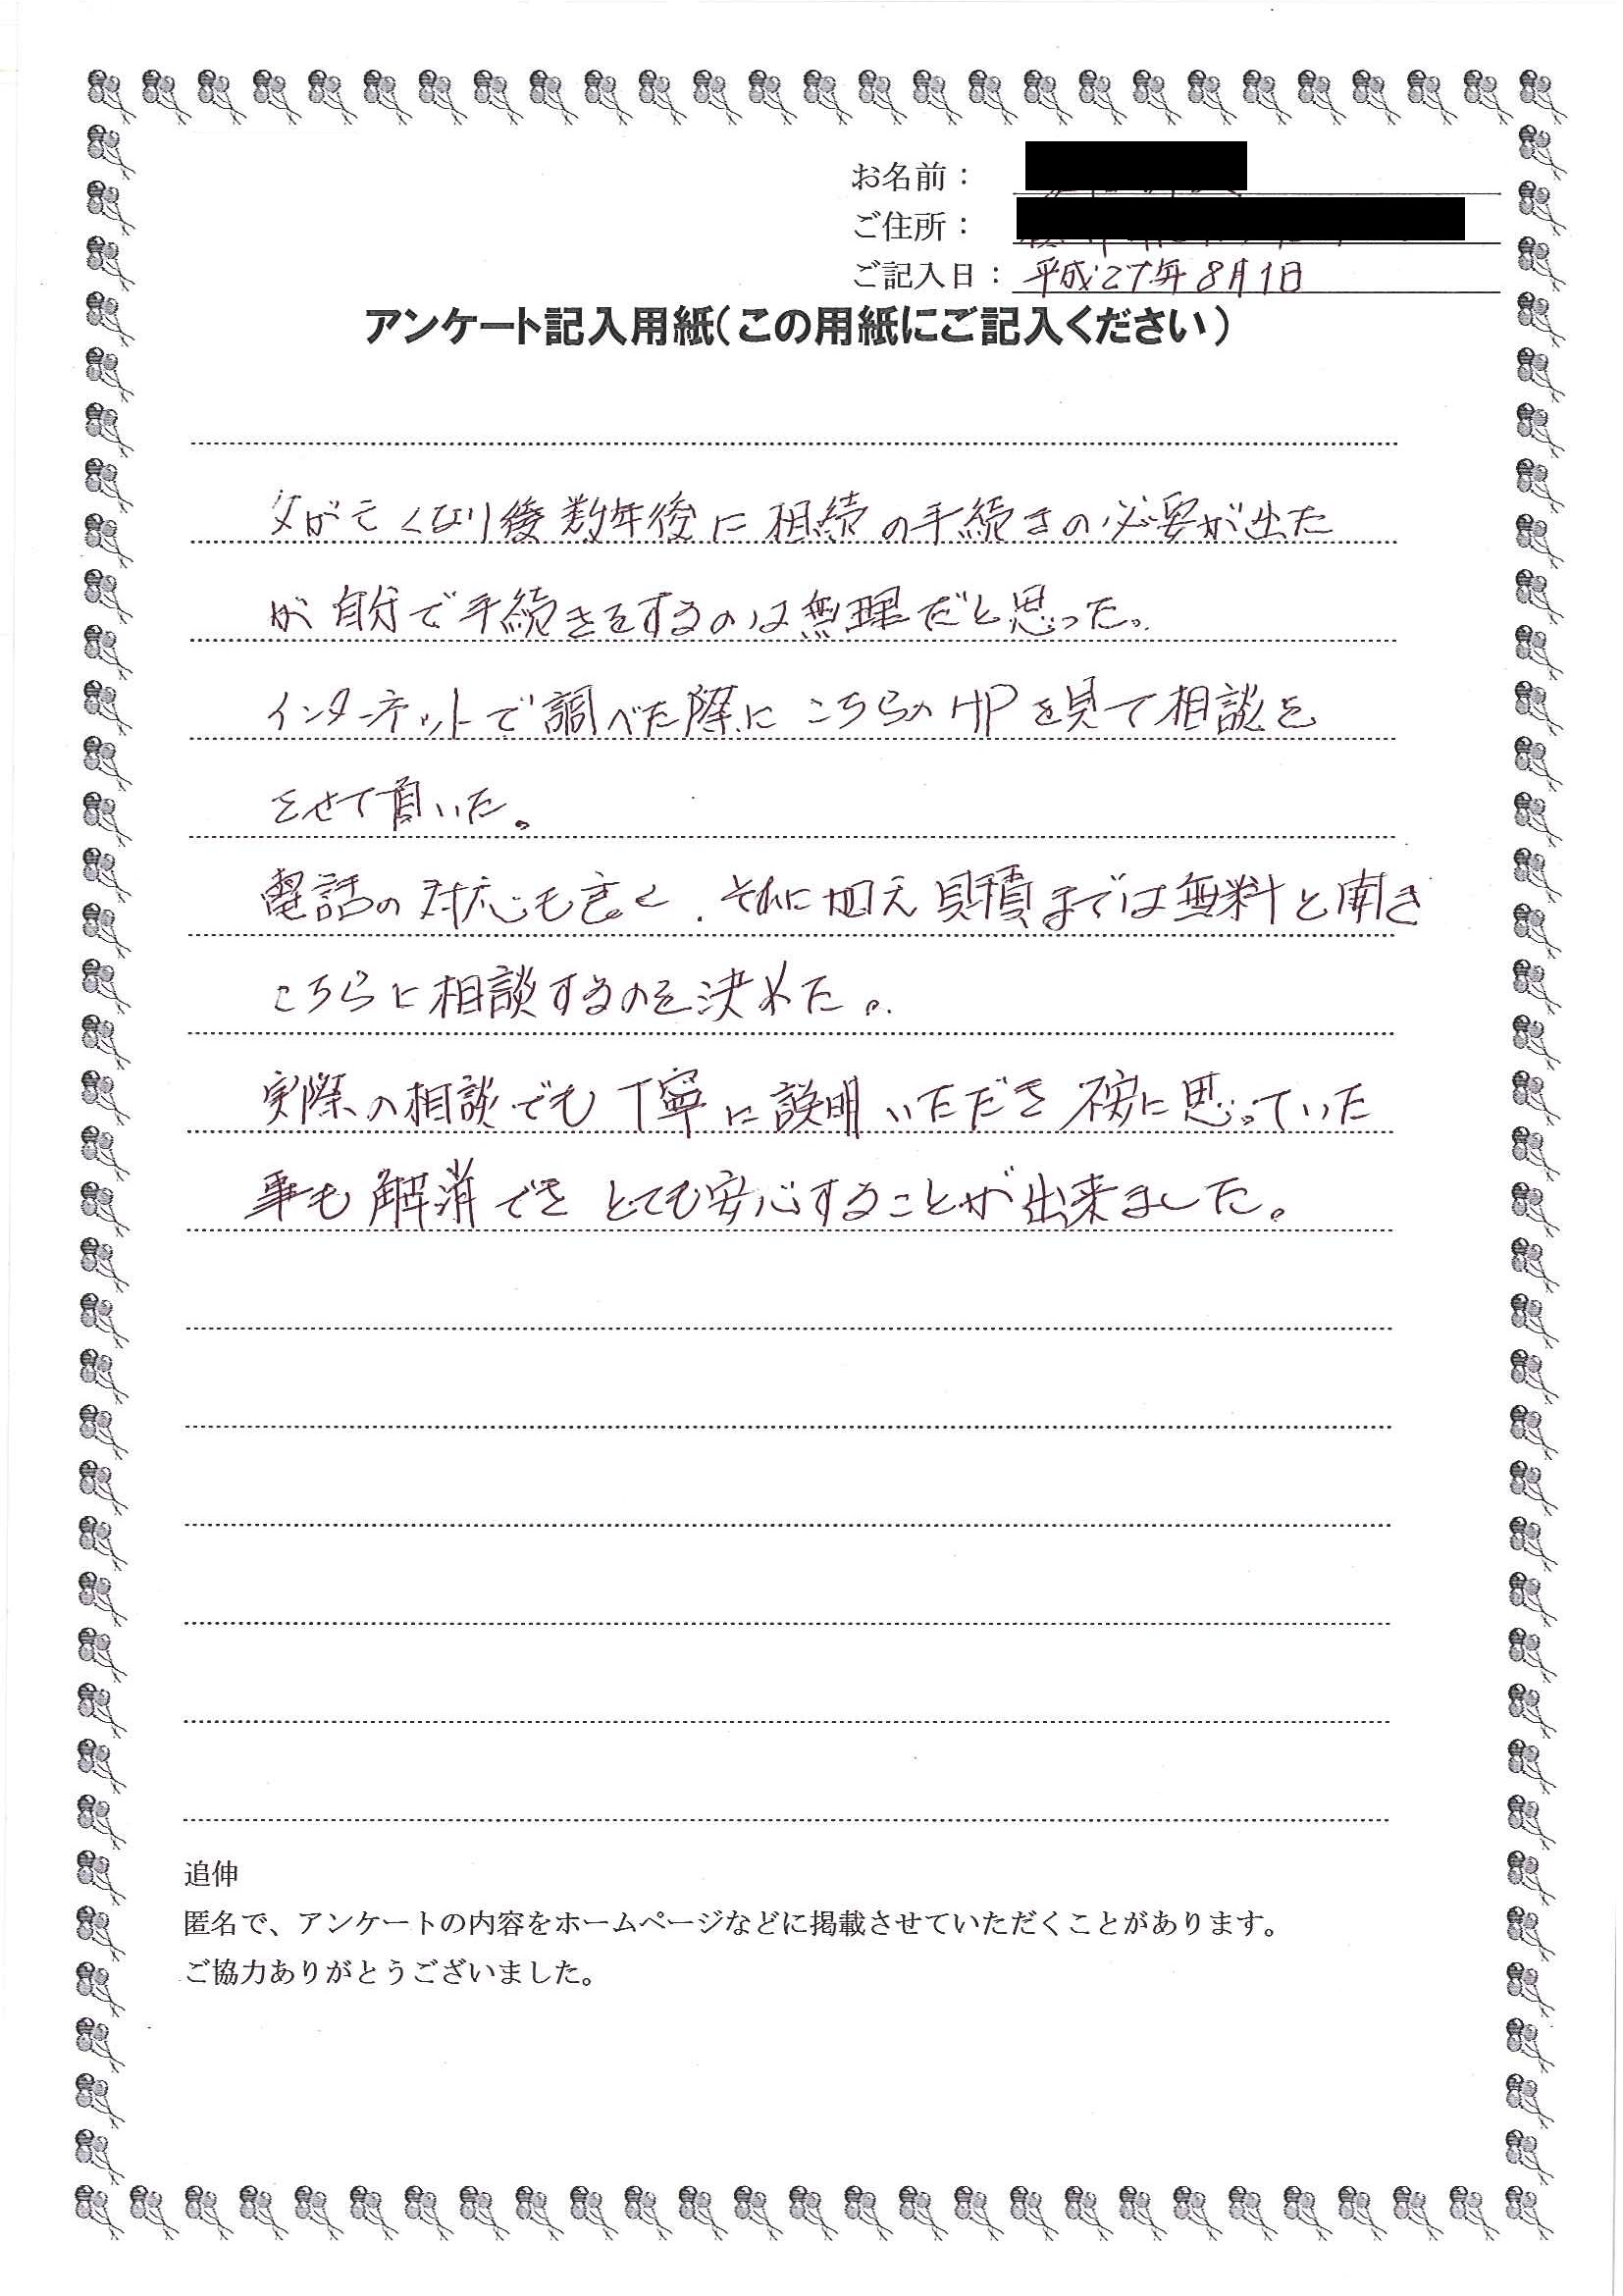 お名前：
ご住所：
ご記入日： 平成27年8月1日
アンケート記入用紙（この用紙にご記入ください）
父が亡くなり後数年後に相続の手続きの必要が出た
が自分で手続きをするのは無理だと思った。
インターネットで調べた際にこちらのHPを見て相談を
させて頂いた。
電話の対応も良く、それに加え見積までは無料と聞き
こちらに相談するのを決めた。
実際の相談でも丁寧に説明いただき不安に思っていた
事も解消できとても安心することが出来ました。
追伸
匿名で、アンケートの内容をホームページなどに掲載させていただくことがあります。
ご協力ありがとうございました。